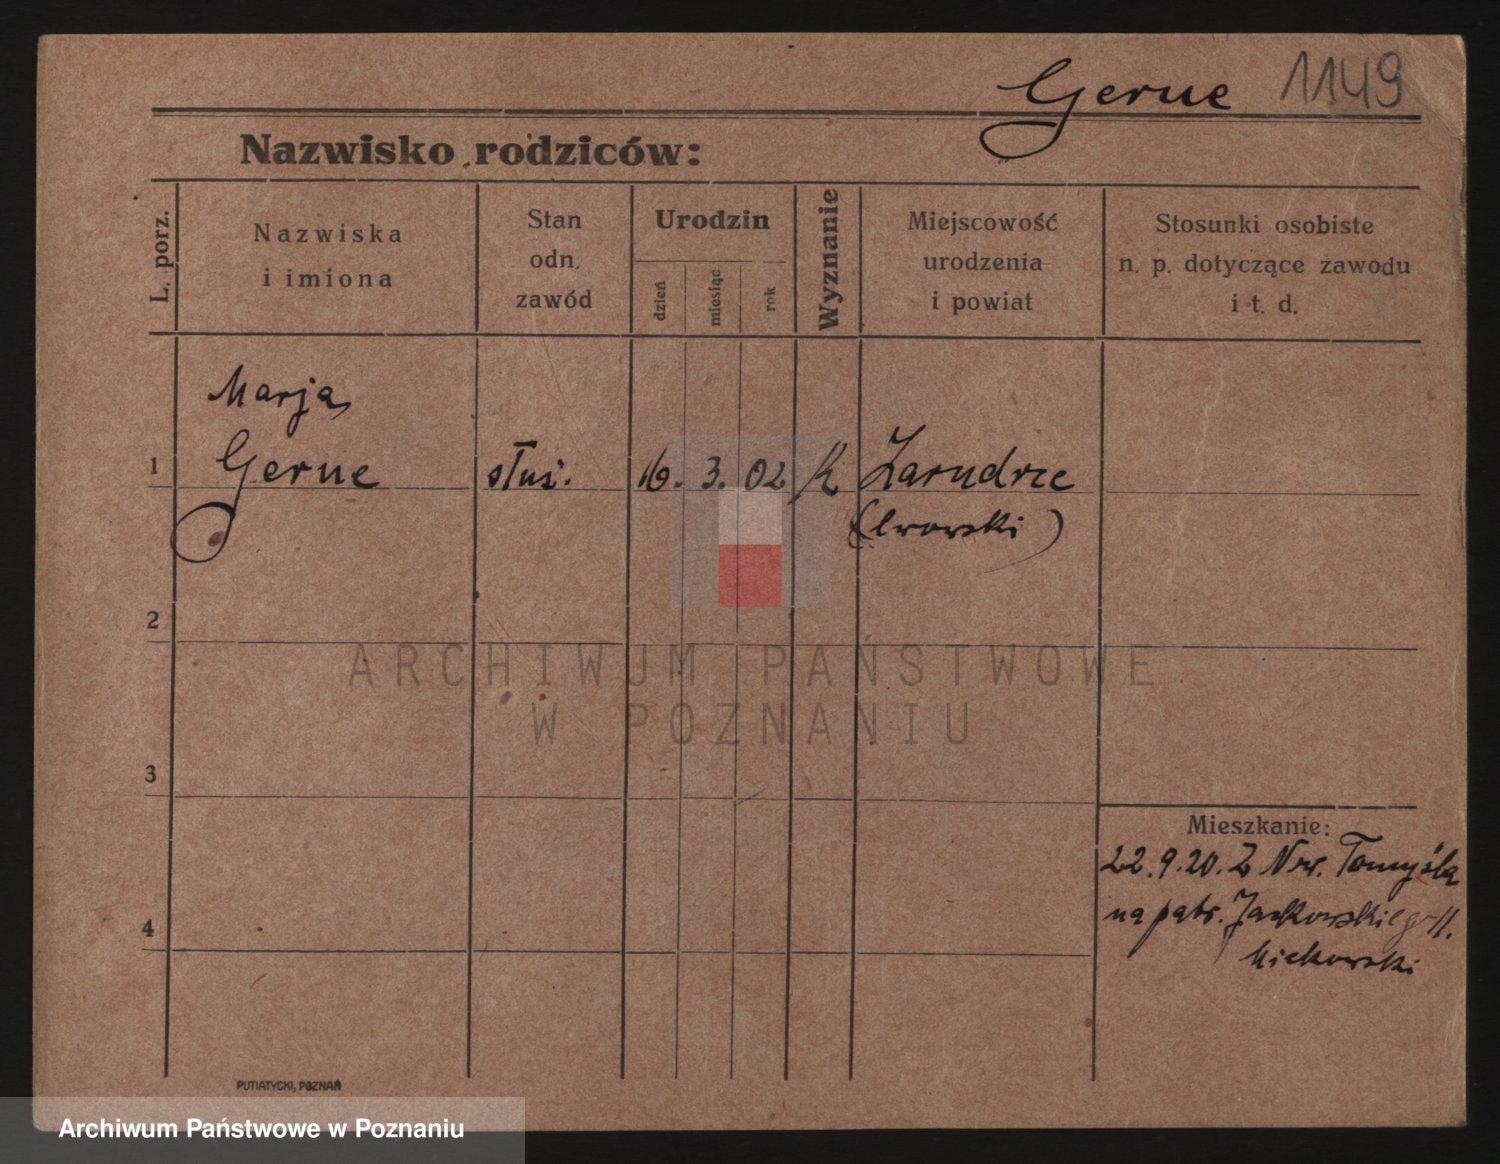 Gerne 1149
Nazwisko rodziców:
L. porz.
Nazwiska
i imiona
Stan
odn.
zawód
Urodzin
dzień
miesiąc
rok
Wyznanie
Miejscowość
urodzenia
i powiat
Stosunki osobiste
n. p. dotyczące zawodu
i t. d.
Marja
1 Gerne służ. 16. 3. 02 k Zarudrce
(lwowski)
2
ARCHIWUM PAŃSTWOWE
W POZNANIU
3
Mieszkanie:
22.9.20. Z Nw. Tomyśla
na patr. Jackowskiego 11.
4
PUTIATYCKI, POZNAŃ
Archiwum Państwowe w Poznaniu